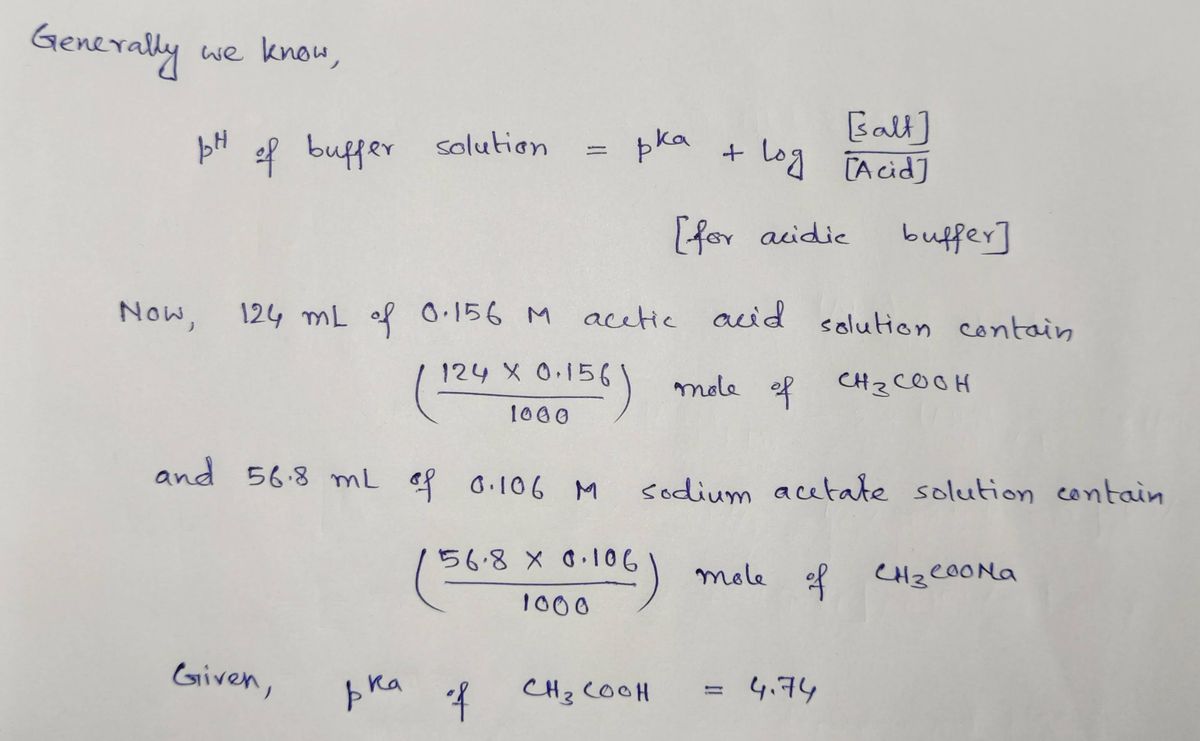 Generally we know,
pH of buffer solution = pka + log [salt]/[Acid]
[for acidic buffer]
Now, 124 mL of 0.156 M acetic acid solution contain
(124 X 0.156/1000) mole of CH3COOH
and 56.8 mL of 0.106 M sodium acetate solution contain
(56.8 X 0.106/1000) mole of CH3COONa
Given, pka of CH3COOH = 4.74